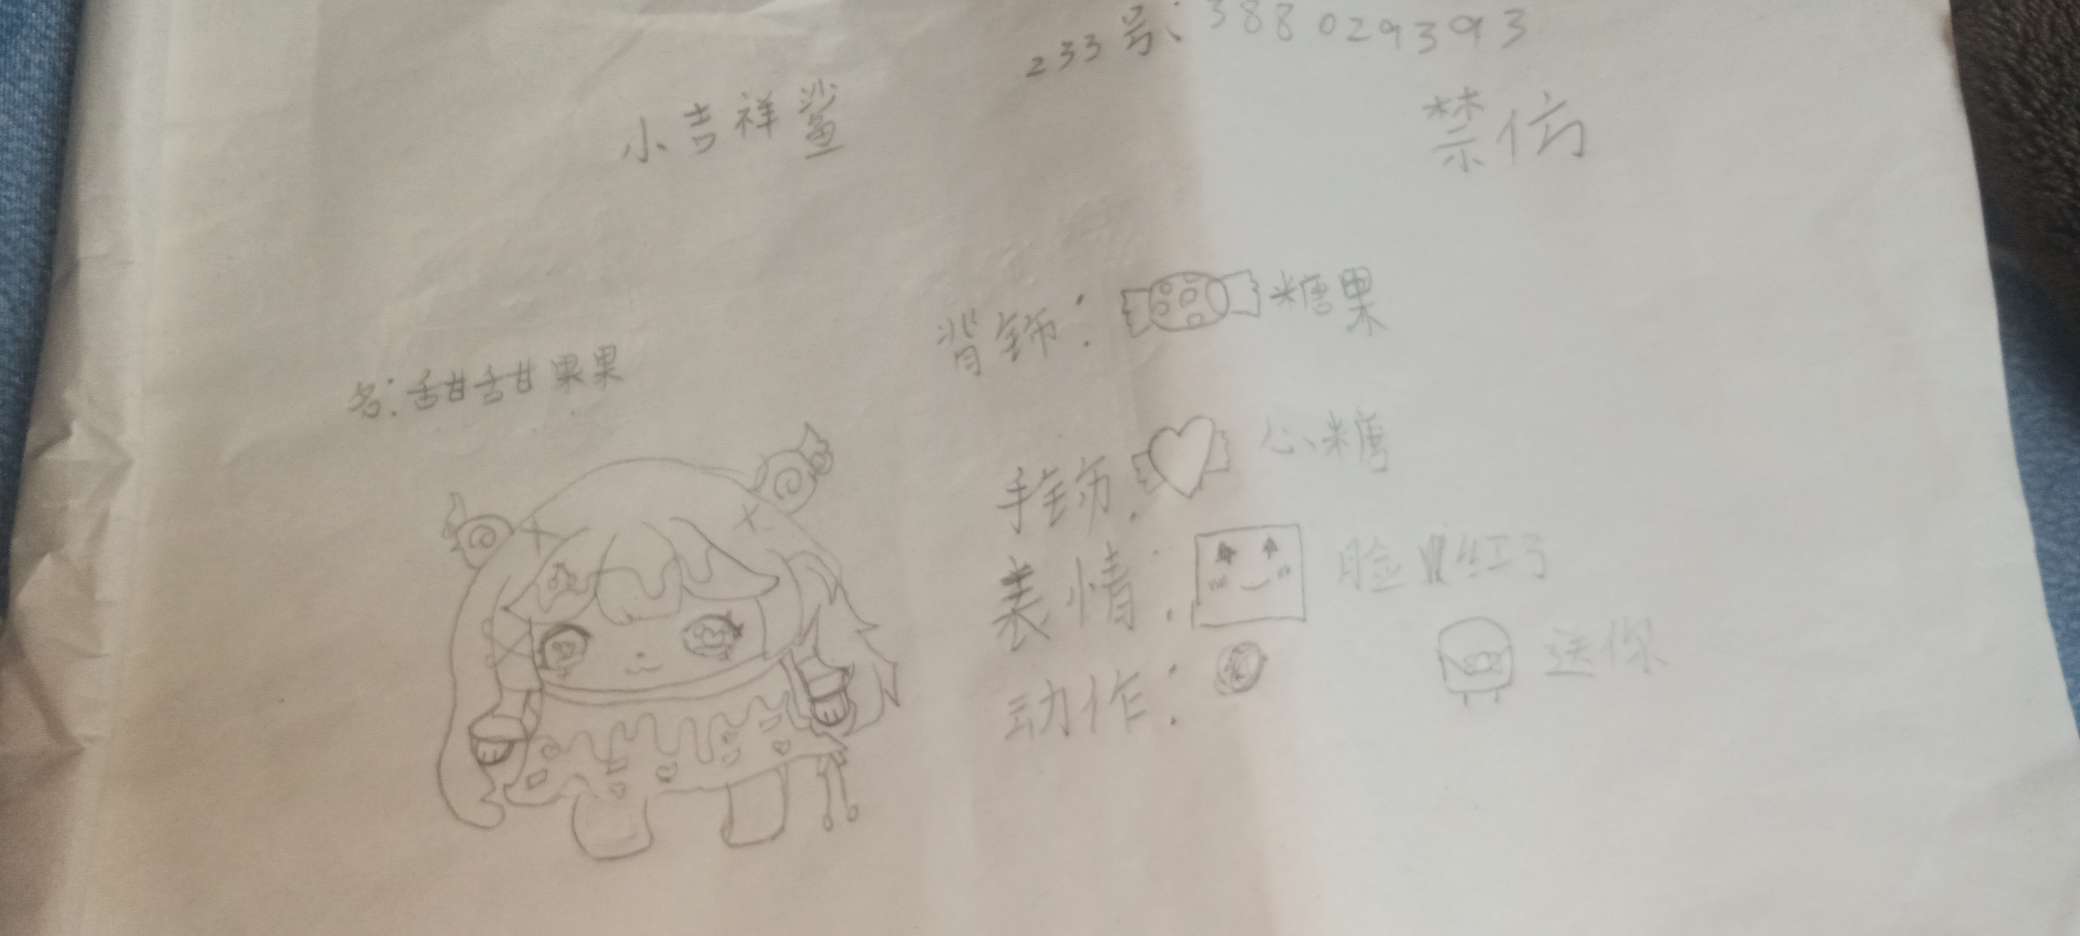 233号:388029393
小吉祥鲨
禁仿
背饰:糖果
名:甜甜果果
手饰:心糖
表情:脸红了
动作:送你